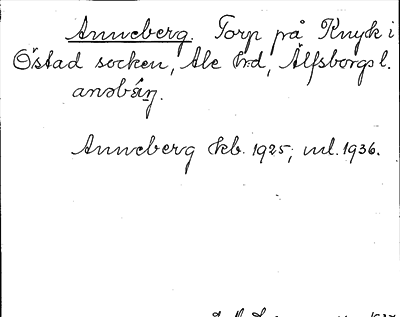 Anneberg. Torp på Knyck i
Östad socken, Ale hrd, Älfsborgs l.
Anneberg kb. 1925; ml. 1936.